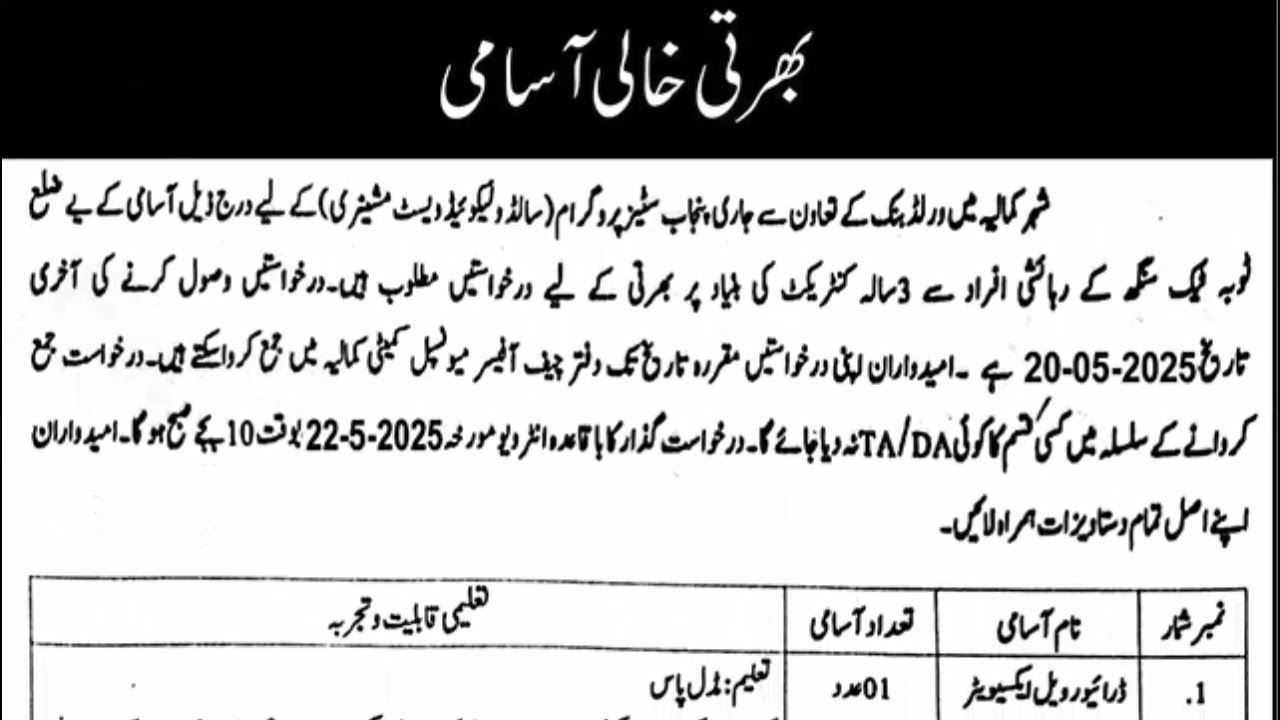 بھرتی خالی آسامی
شہر کمالیہ میں ورلڈ بنک کے تعاون سے جاری پنجاب سٹیز پروگرام (سالڈ و لیکوئیڈ ویسٹ مشینری) کے لیے درج ذیل آسامی کے لیے ضلع
ٹوبہ ٹیک سنگھ کے رہائشی افراد سے 3 سالہ کنٹریکٹ کی بنیاد پر بھرتی کے لیے درخواستیں مطلوب ہیں۔ درخواستیں وصول کرنے کی آخری
تاریخ 20-05-2025 ہے ۔ امیدواران اپنی درخواستیں مقررہ تاریخ تک دفتر چیف آفیسر میونسپل کمیٹی کمالیہ میں جمع کرواسکتے ہیں۔ درخواست جمع
کروانے کے سلسلہ میں کسی قسم کا کوئی TA/DA نہ دیا جائے گا۔ درخواست گذار کا باقاعدہ انٹرویو مورخہ 22-5-2025 بوقت 10 بجے صبح ہوگا۔ امیدواران
اپنے اصل تمام دستاویزات ہمراہ لائیں۔
نمبر شمار نام آسامی تعداد آسامی تعلیمی قابلیت و تجربہ
1. ڈرائیور ویل ایکسیویٹر 01 عدد تعلیم: مڈل پاس